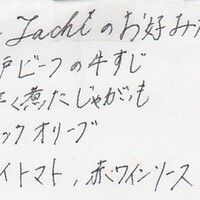 Tachiのお好み
戸ビーフの牛すじ
く煮たじゃがいも
ックオリーブ
イトマト、赤ワインソース